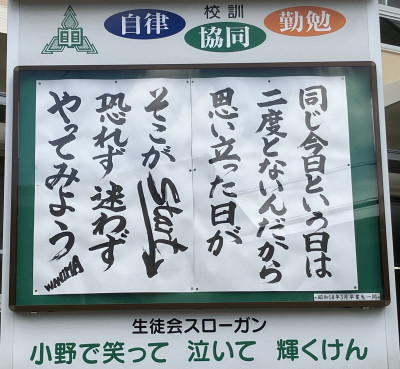 校訓
自律
協同
勤勉
同じ今日という日は
二度とないんだから
思い立った日が
そこがStart
恐れず迷わず
やってみよう
昭和58年3月卒業生一同
生徒会スローガン
小野で笑って 泣いて 輝くけん